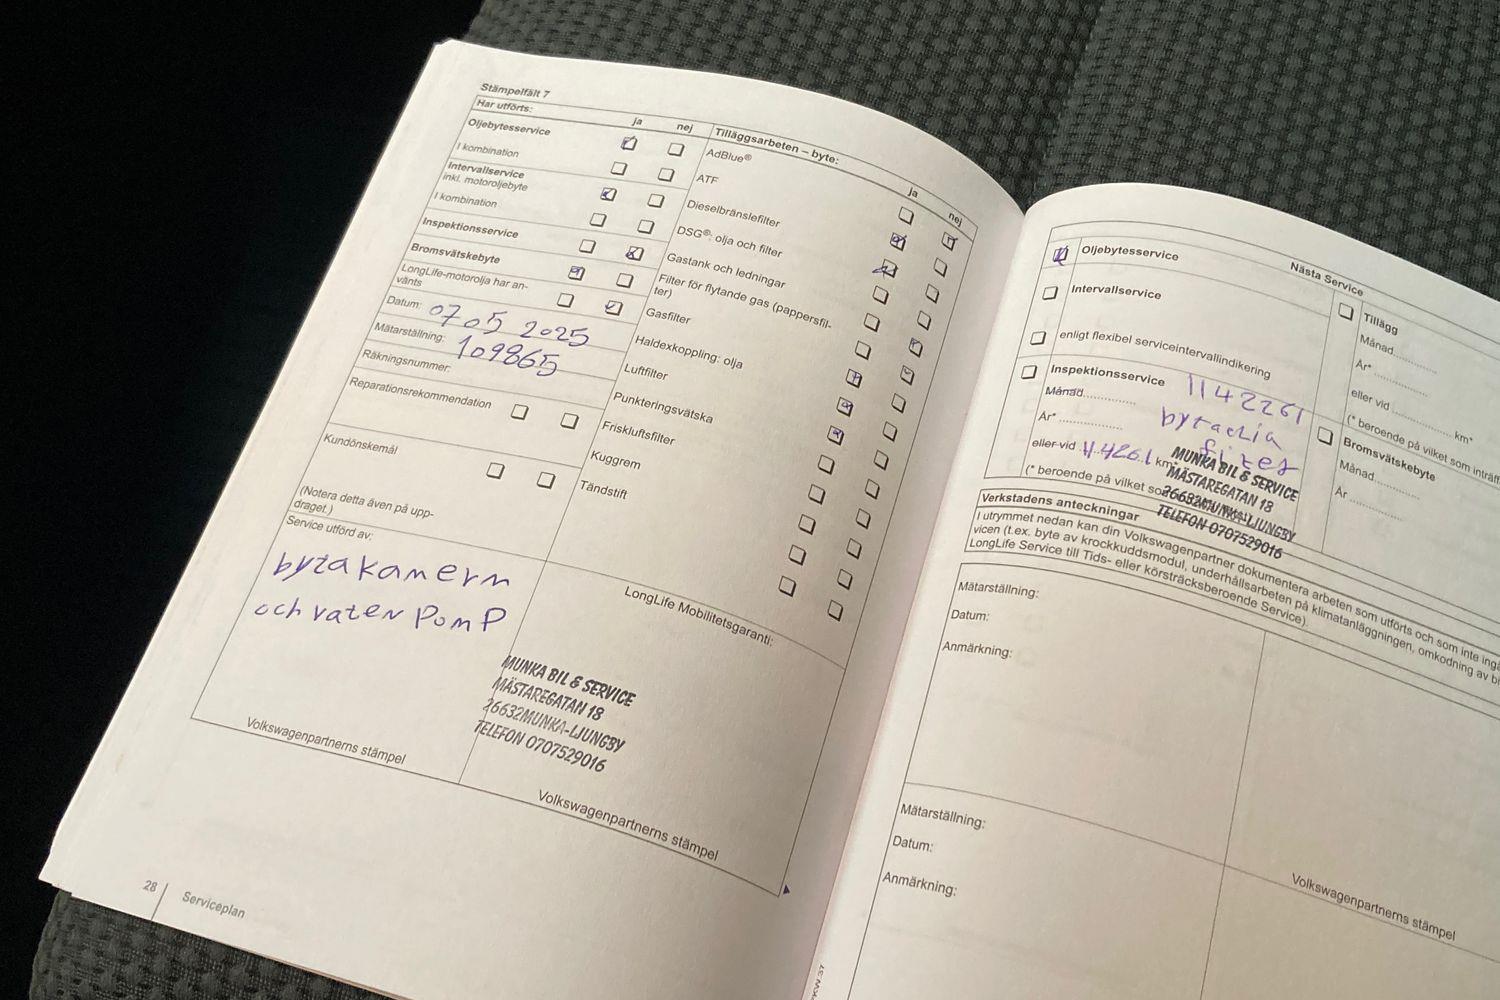 Stämpelfält 7
Har utförts:
ja nej
Oljebytesservice
I kombination
Intervallservice
inkl. motoroljebyte
I kombination
Inspektionsservice
Bromsvätskebyte
LongLife-motorolja har an-
vänts
Datum: 07 05 2025
Mätarställning: 109865
Räkningsnummer:
Reparationsrekommendation
Kundönskemål
(Notera detta även på upp-
draget.)
Tilläggsarbeten – byte:
ja nej
AdBlue®
ATF
Dieselbränslefilter
DSG®: olja och filter
Gastank och ledningar
Filter för flytande gas (pappersfil-
ter)
Gasfilter
Haldexkoppling: olja
Luftfilter
Punkteringsvätska
Friskluftsfilter
Kuggrem
Tändstift
Service utförd av:
byta kamerm
och vaten PomP
Volkswagenpartnerns stämpel
LongLife Mobilitetsgaranti:
MUNKA BIL & SERVICE
MÄSTAREGATAN 18
26632MUNKA-LJUNGBY
TELEFON 0707529016
Volkswagenpartnerns stämpel
28 Serviceplan
Nästa Service
Oljebytesservice
Intervallservice
enligt flexibel serviceintervallindikering
Inspektionsservice
Månad
År*
eller vid km
(* beroende på vilket so
1142261
MUNKA BIL & SERVICE
MÄSTAREGATAN 18
26632MUNKA-LJUNGBY
TELEFON 0707529016
Tillägg
Månad
År*
eller vid km*
(* beroende på vilket som inträff
Bromsvätskebyte
Månad
År
Verkstadens anteckningar
I utrymmet nedan kan din Volkswagenpartner dokumentera arbeten som utförts och som inte ingå
vicen (t.ex. byte av krockkuddsmodul, underhållsarbeten på klimatanläggningen, omkodning av bi
LongLife Service till Tids- eller körsträcksberoende Service).
Mätarställning:
Datum:
Anmärkning:
Mätarställning:
Datum:
Anmärkning:
Volkswagenpartnerns stämpel